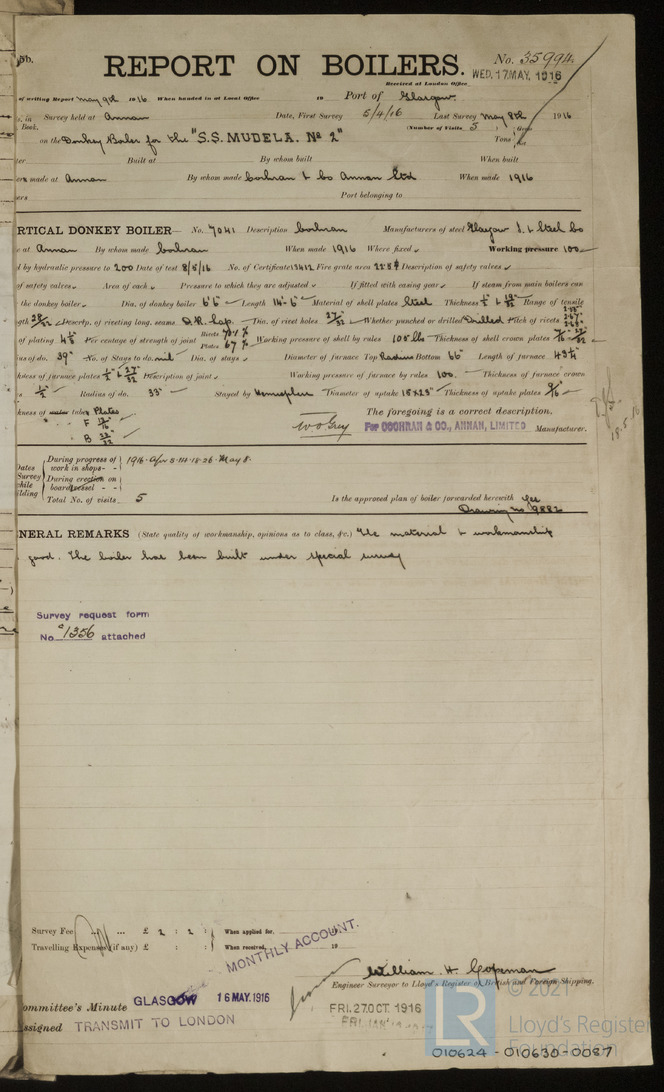 5b.
REPORT ON BOILERS.
No. 35994.
Received at London Office
WED. 17 MAY. 1916
of writing Report May 9th 1916. When handed in at Local Office 19 Port of Glasgow.
s. in Survey held at Annan Date, First Survey 5/4/16 Last Survey May 8th 1916
Book. (Number of Visits 5 )
on the Donkey Boiler for the "S.S. MUDELA. No 2" Tons Gross Net
Built at By whom built When built
made at Annan By whom made Cochran & Co Annan Ltd When made 1916
Port belonging to
RTICAL DONKEY BOILER— No. 7041 Description Cochran Manufacturers of steel Glasgow I. & Steel Co
at Annan By whom made Cochran When made 1916 Where fixed Working pressure 100
d by hydraulic pressure to 200 Date of test 8/5/16 No. of Certificate 13412 Fire grate area Description of safety valves
of safety valves Area of each Pressure to which they are adjusted If fitted with easing gear If steam from main boilers can
the donkey boiler Dia. of donkey boiler 6'6" Length 14'-6" Material of shell plates Steel Thickness Range of tensile
gth 28/32 Descrip. of riveting long. seams D.R. Lap. Dia. of rivet holes 27/32 Whether punched or drilled Drilled Pitch of rivets
of plating Per centage of strength of joint Rivets Plates 67 % Working pressure of shell by rules 104 lbs Thickness of shell crown plates
ius of do. 39" No. of Stays to do. nil Dia. of stays Diameter of furnace Top Radius Bottom 66" Length of furnace
kness of furnace plates Description of joint Working pressure of furnace by rules 100. Thickness of furnace crown
s 1/2" Radius of do. 33" Stayed by Hemisphere Diameter of uptake 15 x 23" Thickness of uptake plates 9/16
kness of water tubes Plates
F
B
The foregoing is a correct description.
For COCHRAN & CO., ANNAN, LIMITED Manufacturer.
Dates Survey while building
During progress of work in shops - - 1916. Apr 5. 14. 18. 26. May 8.
During erection on board vessel - -
Total No. of visits 5 Is the approved plan of boiler forwarded herewith See
Drawing no 9882
NERAL REMARKS (State quality of workmanship, opinions as to class, &c.) The material & workmanship
good. The boiler has been built under special survey
Survey request form
No. 1356 attached
18.5.16
Survey Fee ... ... £ 2 : 2 : When applied for,
Travelling Expenses (if any) £ : : When received, 19
MONTHLY ACCOUNT.
William H. Copeman
Engineer Surveyor to Lloyd's Register of British and Foreign Shipping.
ommittee's Minute GLASGOW 16 MAY. 1916
FRI. 27 OCT. 1916
ssigned TRANSMIT TO LONDON
LR
© 2021
Lloyd's Register
Foundation
010624 - 010630 - 0087